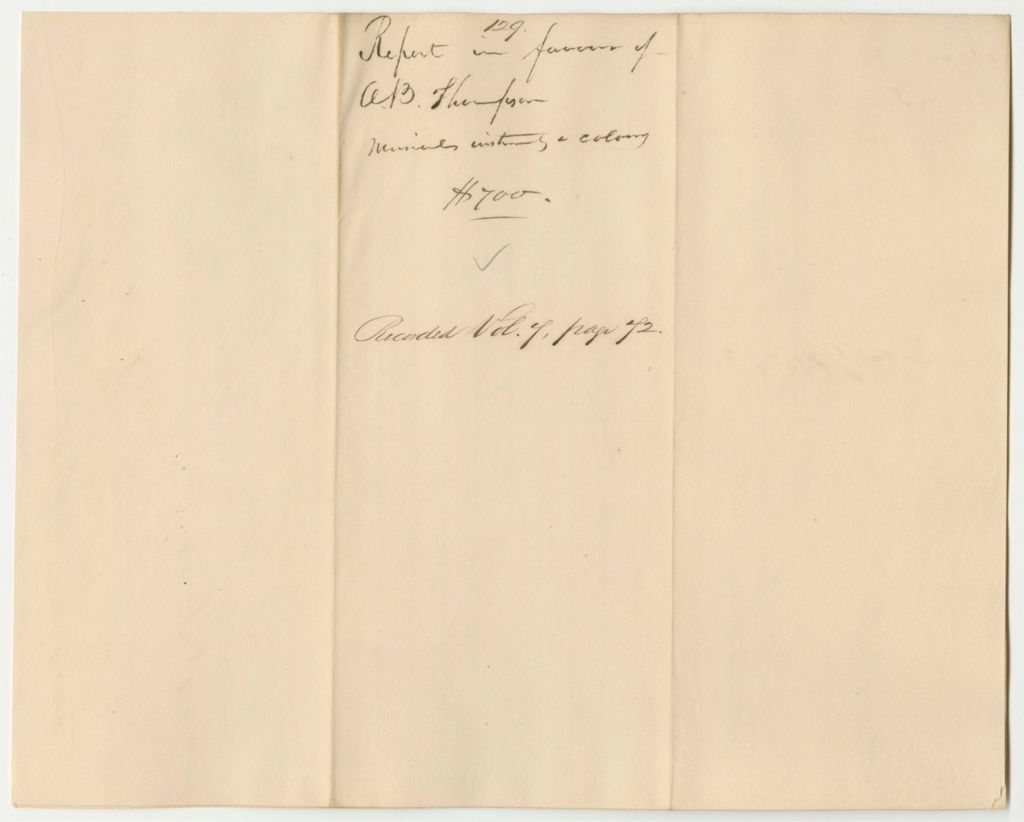 129.
Report in favour of
A.B. Thompson
Musical instruments & colours
$700.
Recorded Vol. 7, page 72.